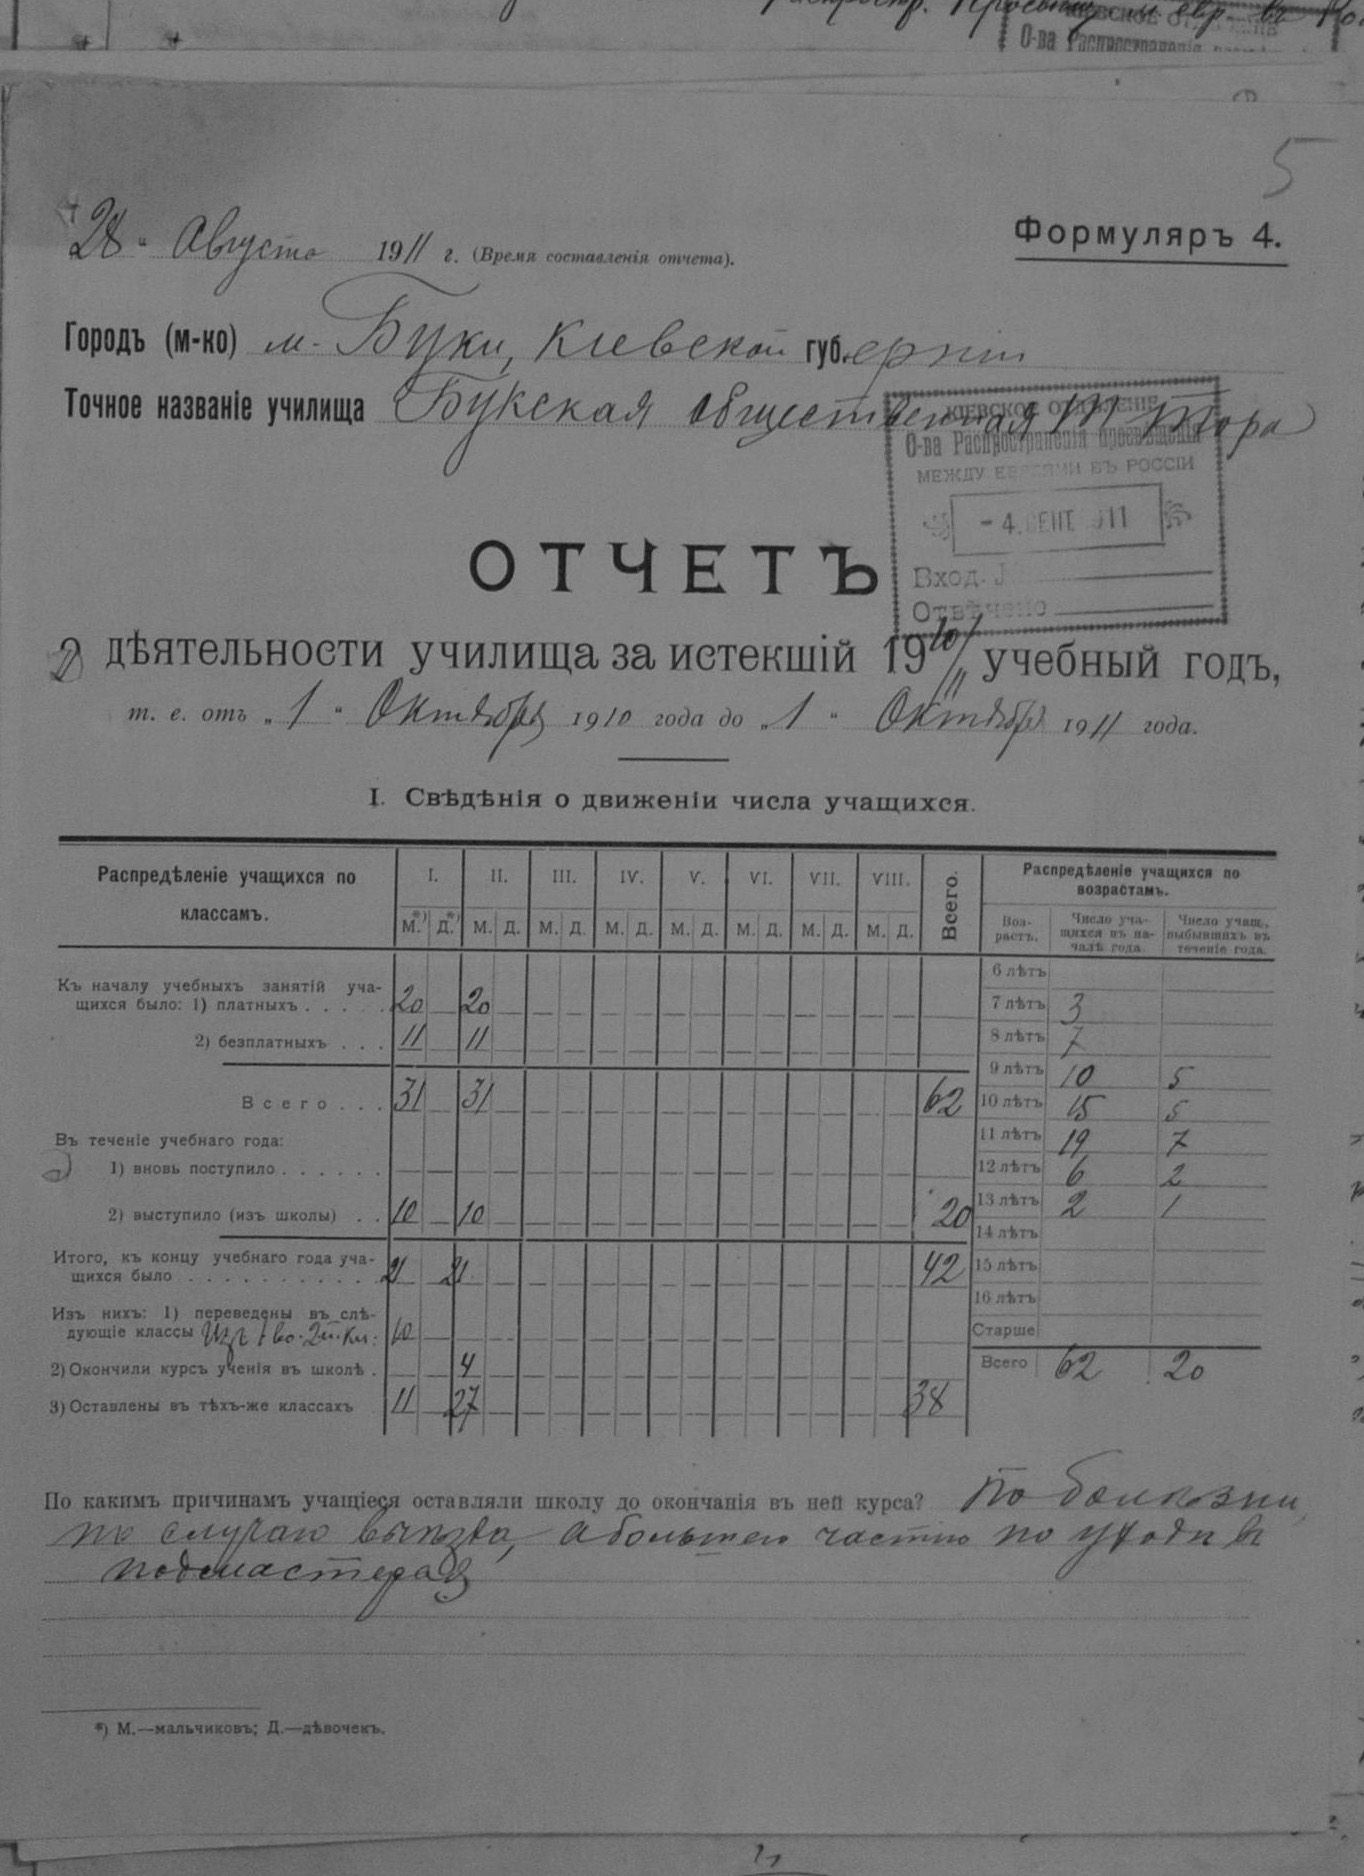 О-ва Распространенія
5
28 " Августа 1911 г. (Время составленія отчета).
Формуляръ 4.
Городъ (м-ко) м. Буки, Кіевской губ.ерніи
Точное названіе училища Букская общественная Т Тора
КІЕВСКОЕ ОТДѢЛЕНІЕ
О-ва Распространенія просвѣщенія
МЕЖДУ ЕВРЕЯМИ ВЪ РОССІИ
- 4. СЕНТ 1911
Вход. №
Отвѣчено
ОТЧЕТЪ
О дѣятельности училища за истекшій 1910/11 учебный годъ,
т. е. отъ „1" Октября 1910 года до „1" Октября 1911 года.
I. Свѣдѣнія о движеніи числа учащихся.
Распредѣленіе учащихся по классамъ. I. II. III. IV. V. VI. VII. VIII. Всего.
М.*) Д.*) М. Д. М. Д. М. Д. М. Д. М. Д. М. Д. М. Д.
Къ началу учебныхъ занятій уча-
щихся было: 1) платныхъ . . . . . 20 20
2) безплатныхъ . . . 11 11
Всего . . . 31 31 62
Въ теченіе учебнаго года:
1) вновь поступило . . . . . .
2) выступило (изъ школы) . . 10 10 20
Итого, къ концу учебнаго года уча-
щихся было . . . . . . . . . . . 21 21 42
Изъ нихъ: 1) переведены въ слѣ-
дующіе классы Из 1 во 2й. Кл: 10
2) Окончили курсъ ученія въ школѣ . 4
3) Оставлены въ тѣхъ-же классахъ 11 27 38
Распредѣленіе учащихся по
возрастамъ.
Воз-
растъ. Число уча-
щихся въ на-
чалѣ года. Число учащ.,
выбывшихъ въ
теченіе года.
6 лѣтъ
7 лѣтъ 3
8 лѣтъ 7
9 лѣтъ 10 5
10 лѣтъ 15 5
11 лѣтъ 19 7
12 лѣтъ 6 2
13 лѣтъ 2 1
14 лѣтъ
15 лѣтъ
16 лѣтъ
Старше
Всего 62 20
По какимъ причинамъ учащіеся оставляли школу до окончанія въ ней курса? По болѣзни,
по случаю выѣзда, а большею частію по уходѣ в
подмастера
*) М.—мальчиковъ; Д.—дѣвочекъ.